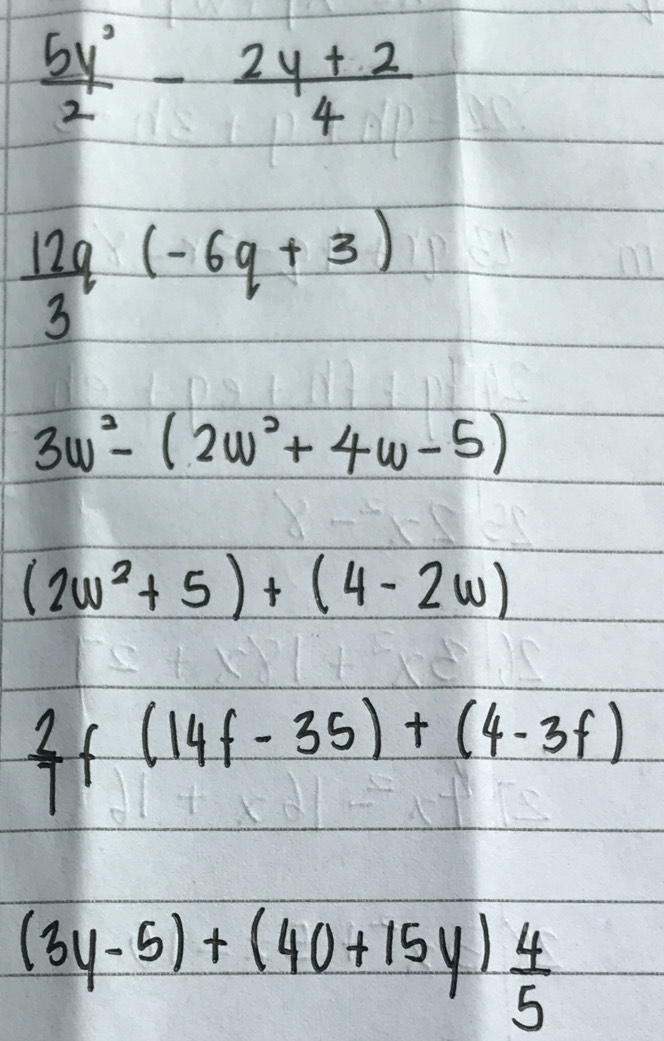 5y²/2 - 2y + 2/4
12q/3 (-6q + 3)
3w² - (2w² + 4w - 5)
(2w² + 5) + (4 - 2w)
2/7 f (14f - 35) + (4 - 3f)
(3y - 5) + (40 + 15y) 4/5